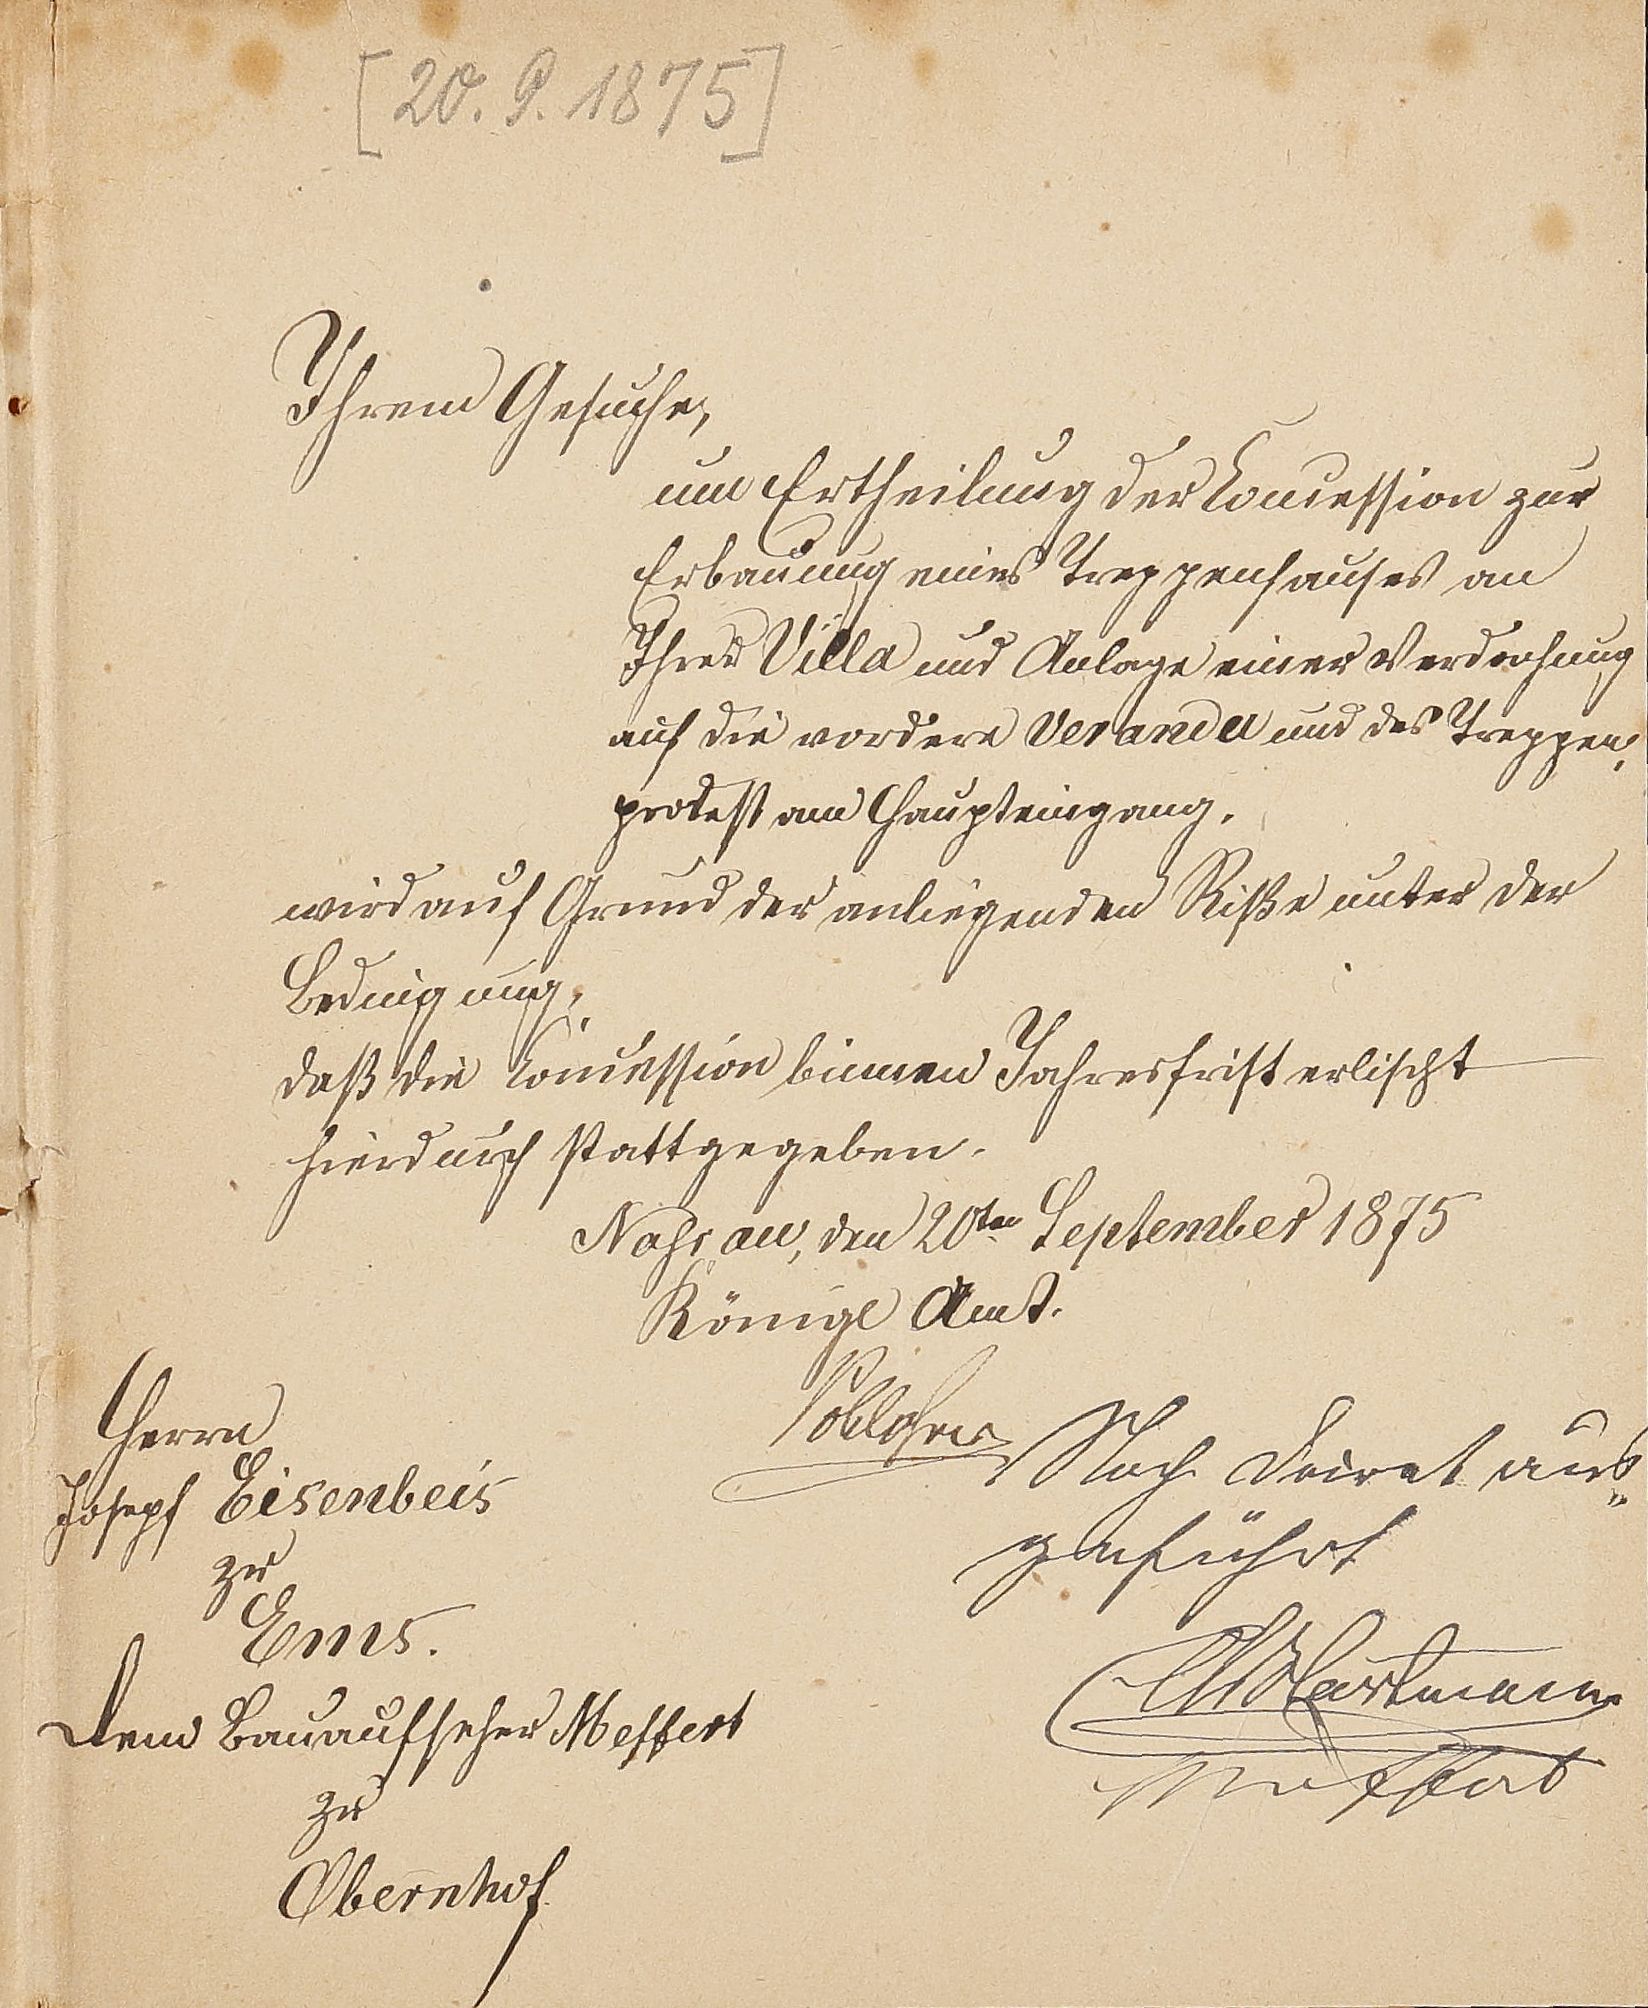 [20. 9. 1875]
Ihrem Gesuche,
um Ertheilung der Concession zur
Erbauung eines Treppenhauses an
Ihrer Villa und Anlage einer Verdachung
auf die vordere Veranda und des Treppen„
protest am Haupteingang.
wird auf Grund der anliegenden Riße unter der
Bedingung,
daß die Concession binnen Jahresfrist erlischt
hierdurch stattgegeben.
Nassau, den 20ten September 1875
Königl Amt.
Herrn
Josepf Eisenbeis
zu
Ems.
Dem Bauaufseher Meffert
zu
Obernhof
Nach Decret aus„
geführt
Hartmann
Meffert